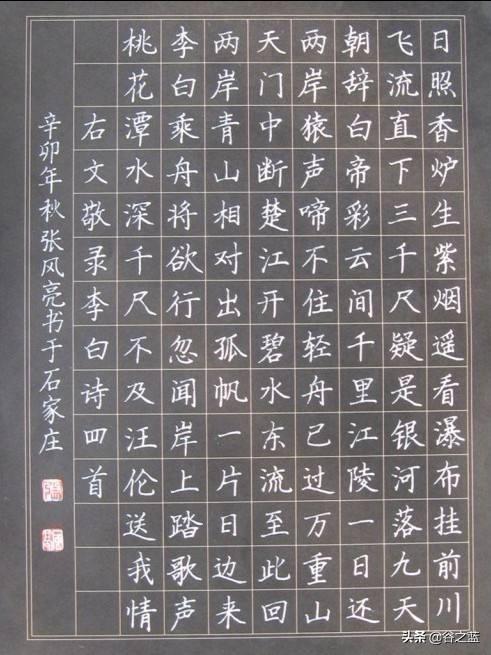 日照香炉生紫烟遥看瀑布挂前川
飞流直下三千尺疑是银河落九天
朝辞白帝彩云间千里江陵一日还
两岸猿声啼不住轻舟已过万重山
天门中断楚江开碧水东流至此回
两岸青山相对出孤帆一片日边来
李白乘舟将欲行忽闻岸上踏歌声
桃花潭水深千尺不及汪伦送我情
右文敬录李白诗四首
辛卯年秋张风亮书于石家庄
头条 @谷之蓝